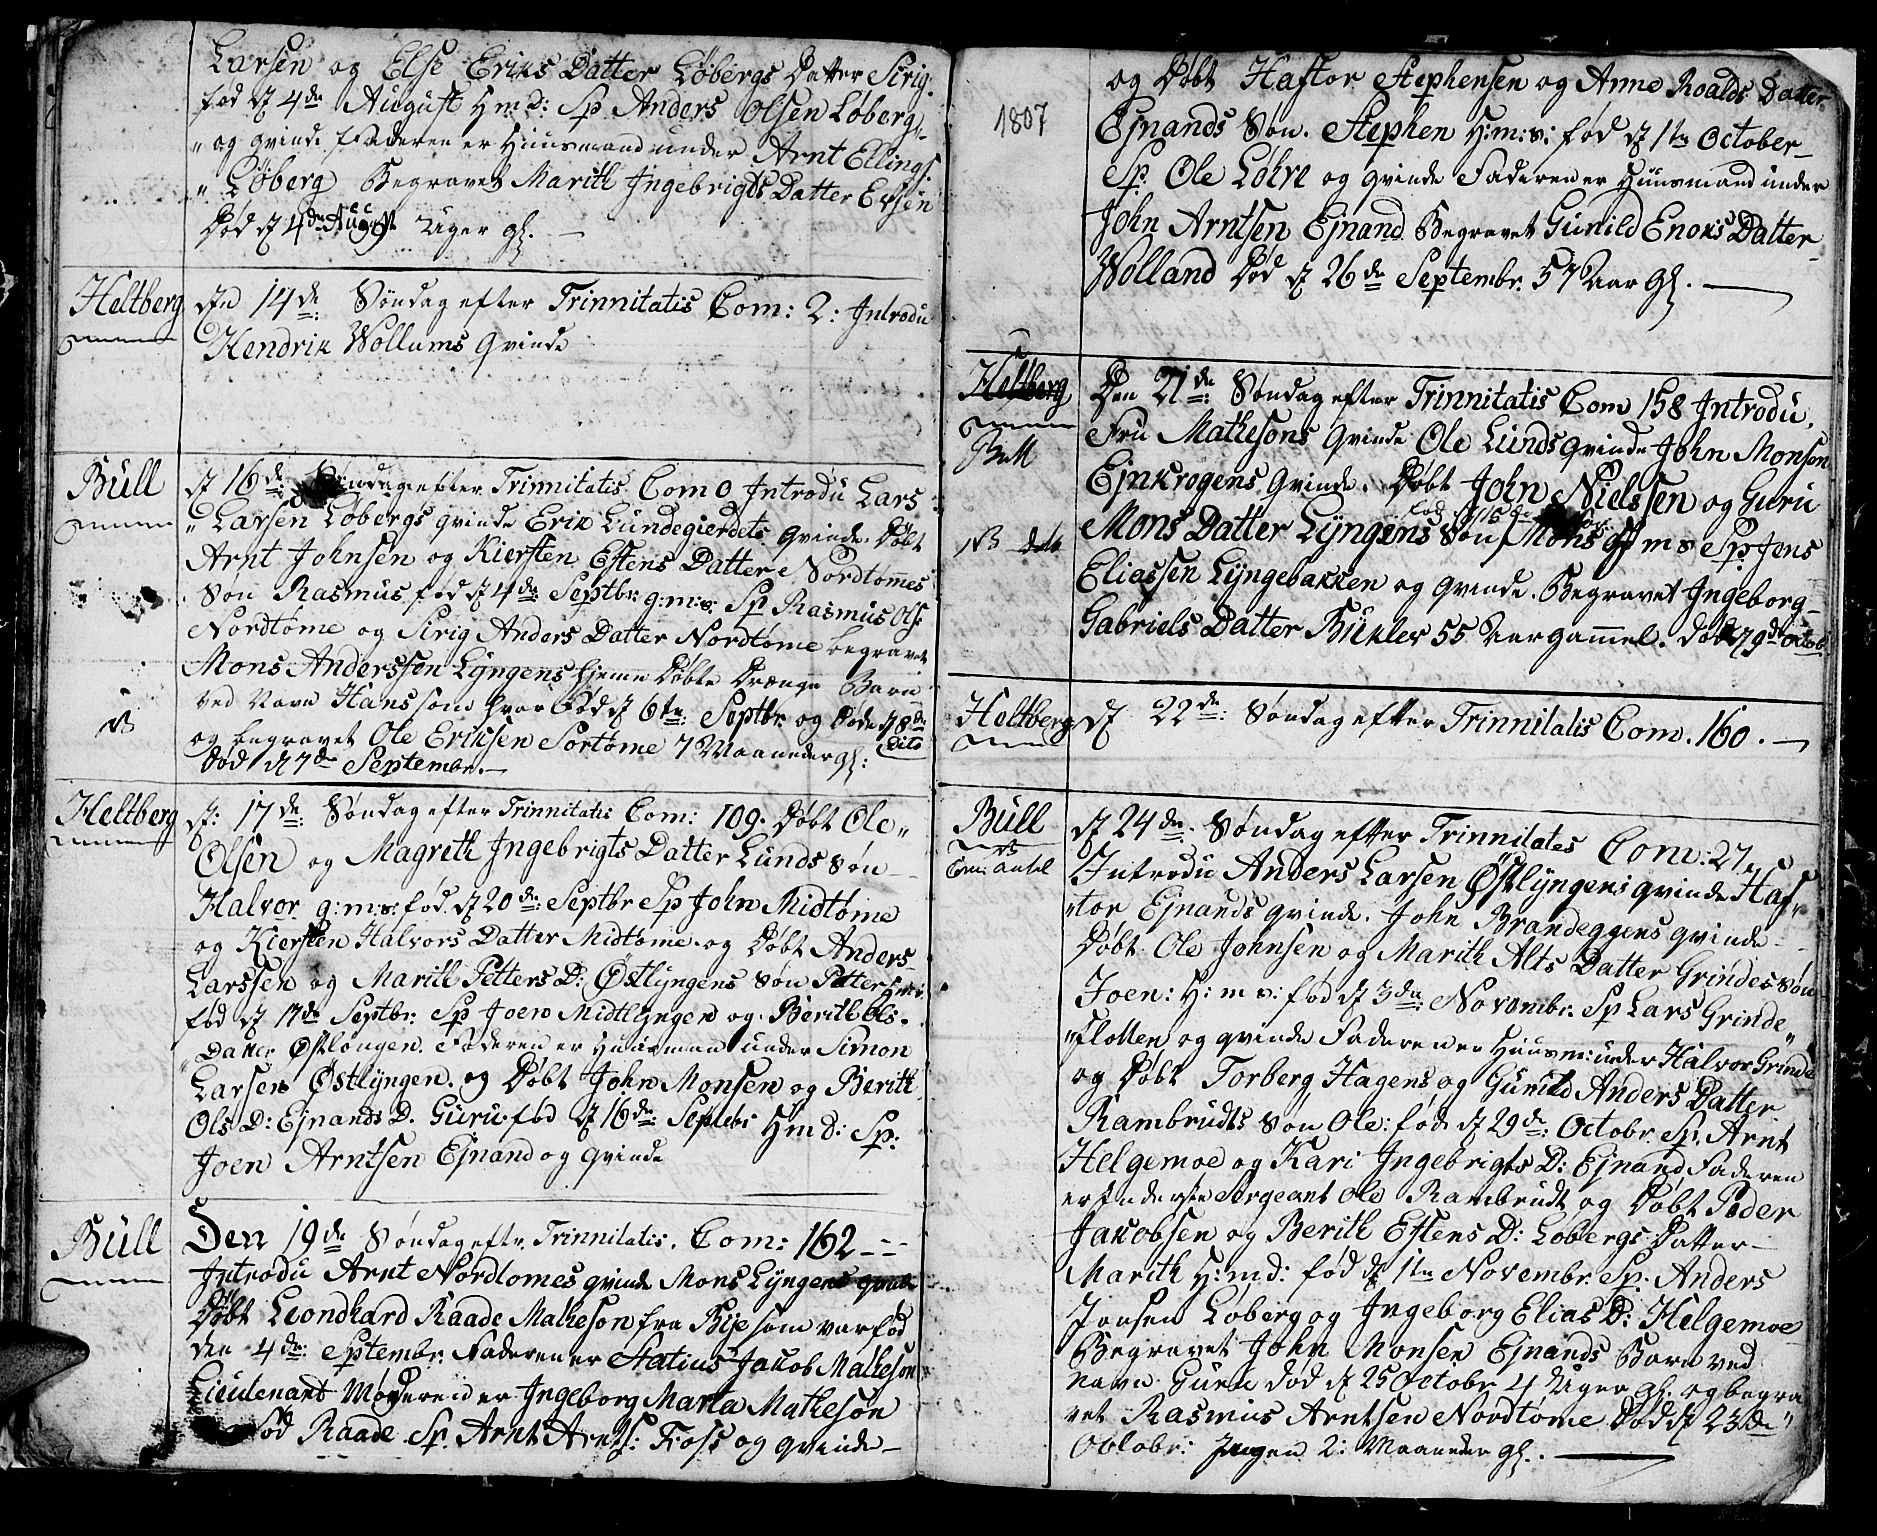 Larsen og Else Eriks Datter Løbergs Datter Sirig.
fød d 4de August H.m.D: Sp. Anders Olsen Løberg
" og qvinde. Faderen er Huusmand under Arnt Ellings:
" Løberg Begravet Marith Ingebrigts Datter
Død d 4de August Uger gl. —
Heltberg
den 14de Søndag efter Trinnitatis Com: 2: Introdu
Hendrik Wollums Qvinde
Büll
d 16de: Søndag efter Trinnitatis Com 0 Introdu Lars
" Larsen Løbergs qvinde Erik Lundegierdets qvinde. Døbt
Arnt Johnsen og Kiersten Estens Datter Nordtømes
Søn Rasmus fød d 4de Septbr: g:m:s: Sp Rasmus Ols:
Nordtøme og Sirig Anders Datter Nordtøme begravet
Mons Anderssen Lyngens hjemme Døbte Drænge Barn
ved Navn Hans som var Fød d 6te: Septbr og Døde d 8de
NB
og begravet Ole Eriksen Sortøme 7 Maaneder gl: Dito
Død d 7de September. —
Heltberg
d: 17de: Søndag efter Trinnitatis Com: 109. Døbt Ole "
Olsen og Magreth Ingebrigts Datter Lunds Søn
Halvor g:m:s: fød d 20de: Septbr Sp John Midtøme
og Kiersten Halvors Datter Midtøme. og Døbt Anders
Larssen og Marith Petters D: Østlyngens Søn Petter H:m:s:
fød d 17de Septbr: Sp Joen Midtlyngen og Berith Ols.
" Datter Østlongen. Faderen er Huusman under Simon
Larsen Østlyngen. og Døbt John Monsen og Berith
Ols D: Ejnands D. Guru. fød d 16de Septebr H m D: Sp:
Joen Arntsen Ejnand og qvinde
Büll
Den 19de Søndag eftr. Trinnitatis. Com: 162 — —
Introdu Arnt Nordtomes qvinde Mons Lyngens qvinde
Døbt Leondhard Raade Matheson fra Bye som var fød
den 4de: Septembr. Faderen er Statius Jacob Matheson
Lieutenant Moderen er Ingeborg Marta Mathesøn
fød Raade Sp. Arnt Arnts: Foss og qvinde —
1807
og Døbt Haftor Stephensen og Anne Roalds Datter
Ejnands Søn. Stephen H:m:s: fød d 1te October
Sp. Ole Løhre og qvinde Faderen er Huusmand under
John Arntsen Ejnand Begravet Gunild Enoks Datter
Wolland Død d 26de Septembr. 57 Aar gl. —
Heltberg
Büll
Den 21de: Søndag efter Trinnitatis Com 158 Introdu.
Fru Mathesons qvinde Ole Lunds qvinde John Monsen
Ejnkrogens qvinde. Døbt John Nielssen og Guru
Mons Datter Lyngens Søn Mons H m s Sp: Jens
NB
Eliassen Lyngebakken og qvinde. Begravet Ingeborg
Gabriels Datter Bükler 55 Aar gammel. Død d 9de Octob
Heltberg
d 22de: Søndag efter Trinnitatis Com. 160. —
Büll
NB
Com: antal
d 24de. Søndag efter Trinnitates Com: 27.
Introdu Anders Larsen Østlyngens qvinde Haf,
" tor Ejnands qvinde. John Brandeggens qvinde
Døbt Ole Johnsen og Marith Alts Datter Grindes Søn
Joen: H: m s: fød d 3de: Novembr. Sp Lars Grinde
" flotten og qvinde Faderen er Huusm: under Halvor Grinde
og Døbt Torberg Hagens og Gunild Anders Datter
Rambrudts Søn Ole: fød d 29de: Octobr. Sp. Arnt
Helgemoe og Kari Ingebrigts D: Ejnand Faderen
er Sergeant Ole Rambrudt og Døbt Peder
Jakobsen og Berith Estens D: Løbergs Datter —
Marith H:m d: fød d 1te Novembr. Sp. Anders
Jonsen Løberg og Ingeborg Elias D: Helgemoe
Begravet John Monsen Ejnands Barn ved
navn Guru død d 25 Octobr 4 Uger gl. og begra
vet Rasmus Arntsen Nordtøme Død d 23de "
Octobr: 2: Maaneder gl. —